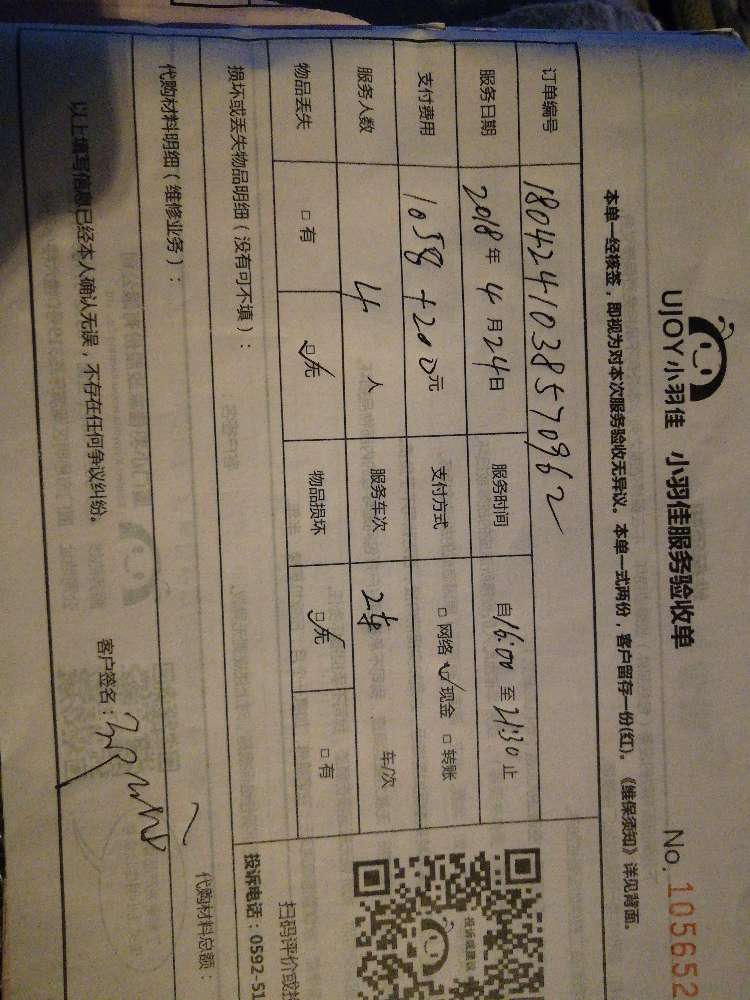 UJOY小羽佳 小羽佳服务验收单 No. 105652
本单一经核签，即视为对本次服务验收无异议。本单一式两份，客户留存一份(红)。《维保须知》详见背面。
订单编号 18042410385570962
服务日期 2018年4月24日 服务时间 自16:00至21:30止
支付费用 1058+200元 支付方式 □网络 ☑现金 □转账
服务人数 4人 服务车次 2车 车/次
物品丢失 □有 ☑无 物品损坏 ☑无 □有
损坏或丢失物品明细（没有可不填）：
代购材料明细（维修业务）： 代购材料总额：
以上填写信息已经本人确认无误，不存在任何争议纠纷。 客户签名：
投诉或建议
扫码评价或投
投诉电话：0592-51